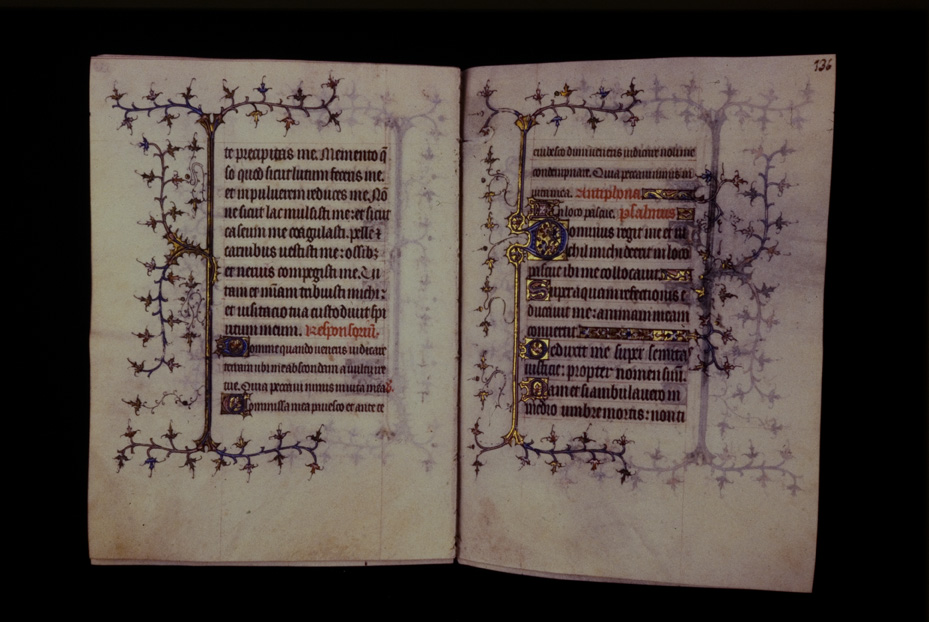 te precipitas me. Memento q̄
so quod sicut lutum feceris me.
et in pulverem reduces me. Nō
ne sicut lac mulsisti me: et sicut
caseum me coagulasti. pelle ⁊
carnibus vestisti me: ossib;
et nervis compegisti me. Vi
tam et m̄iam tribuisti michi:
et visitacio tua custodivit spi
ritum meum. Responsoriū.
Domine quando veneris iudicare
terram ubi me abscondam a vultu ire
tue. Quia peccavi nimis in vita mea
Commissa mea pavesco et ante te
136
erubesco dum veneris iudicare noli me
condempnare. Quia peccavi nimis in
vita mea. Antiphona
In loco pascue. psalmus
Dominus regit me et ni
chil michi deerit in loco
pascue ibi me collocavit
Super aquam refectionis e
ducavit me: animam meam
convertit
Deduxit me super semitas
iusticie: propter nomen suū.
Nam et si ambulavero in
medio umbre mortis: non ti